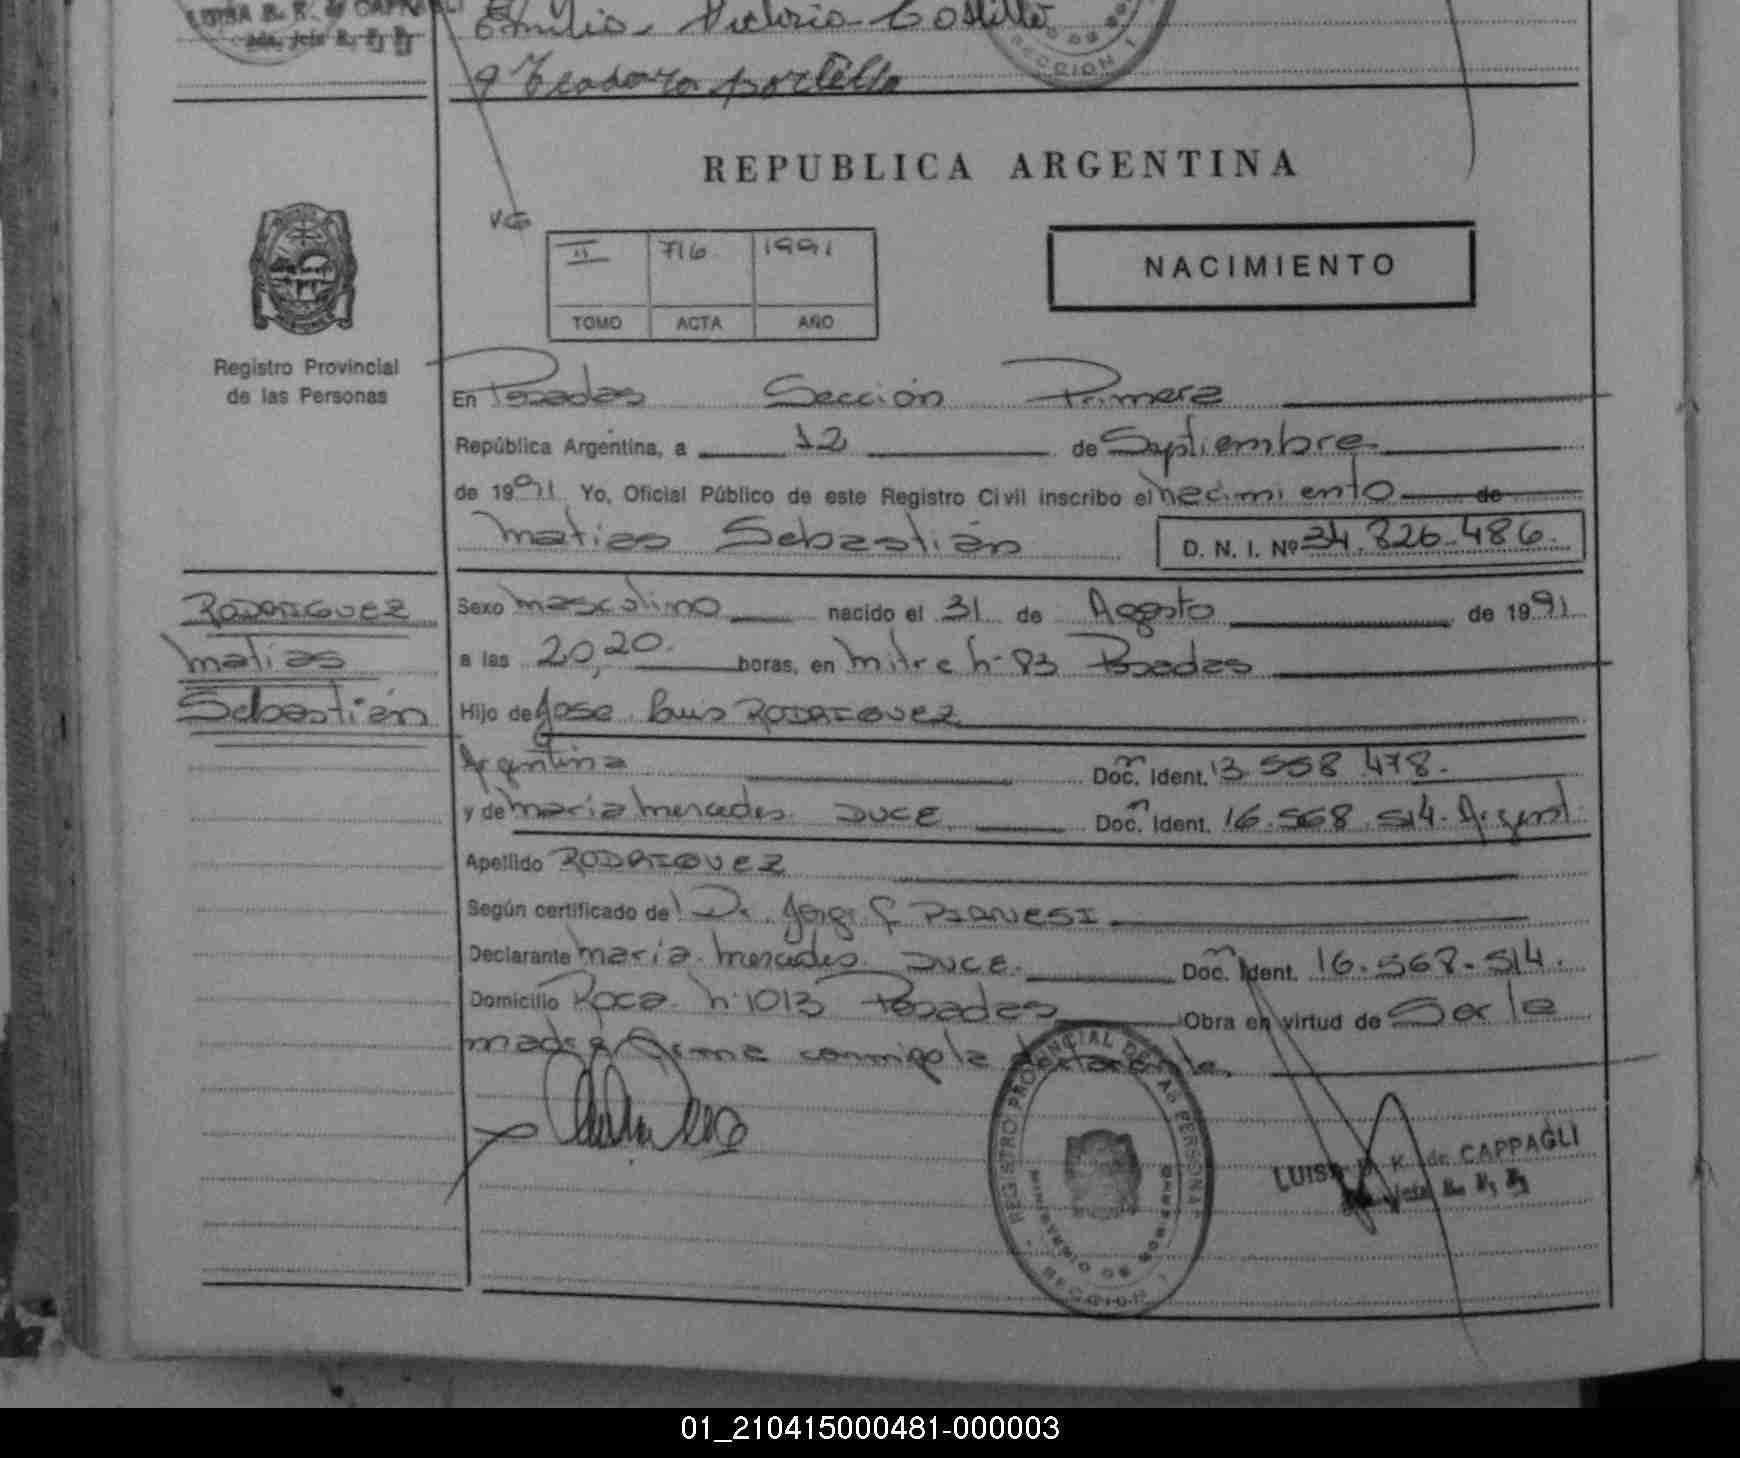 LUISA B. K. de CAPPAGLI
Emilia Victoria Costillo
SECCION 1
y Teodoro Portillo
REPUBLICA ARGENTINA
VG
II 716 1991
TOMO ACTA AÑO
NACIMIENTO
Registro Provincial
de las Personas
En Posadas Sección Primera
República Argentina, a 12 de Septiembre
de 1991 Yo, Oficial Público de este Registro Civil inscribo el nacimiento de
Matias Sebastián D. N. I. Nº 34.826.486.
RODRIGUEZ
Matias
Sebastián
Sexo masculino nacido el 31 de Agosto de 1991
a las 20,20. horas, en Mitre n· 83 Posadas
Hijo de Jose Luis RODRIGUEZ
Argentina Doc. Ident. 13.558.478.
y de Maria Mercedes DUCE Doc. Ident. 16.568.514. Argent.
Apellido RODRIGUEZ
Según certificado de Dr. Jorge PIANESI
Declarante María Mercedes DUCE. Doc. Ident. 16.568.514.
Domicilio Roca n·1013 Posadas Obra en virtud de Ser la
madre firma conmigo la declarante.
REGISTRO PROVINCIAL DE LAS PERSONAS
MINISTERIO DE GOBIERNO
SECCION 1
LUISA B. K. de CAPPAGLI
01_210415000481-000003